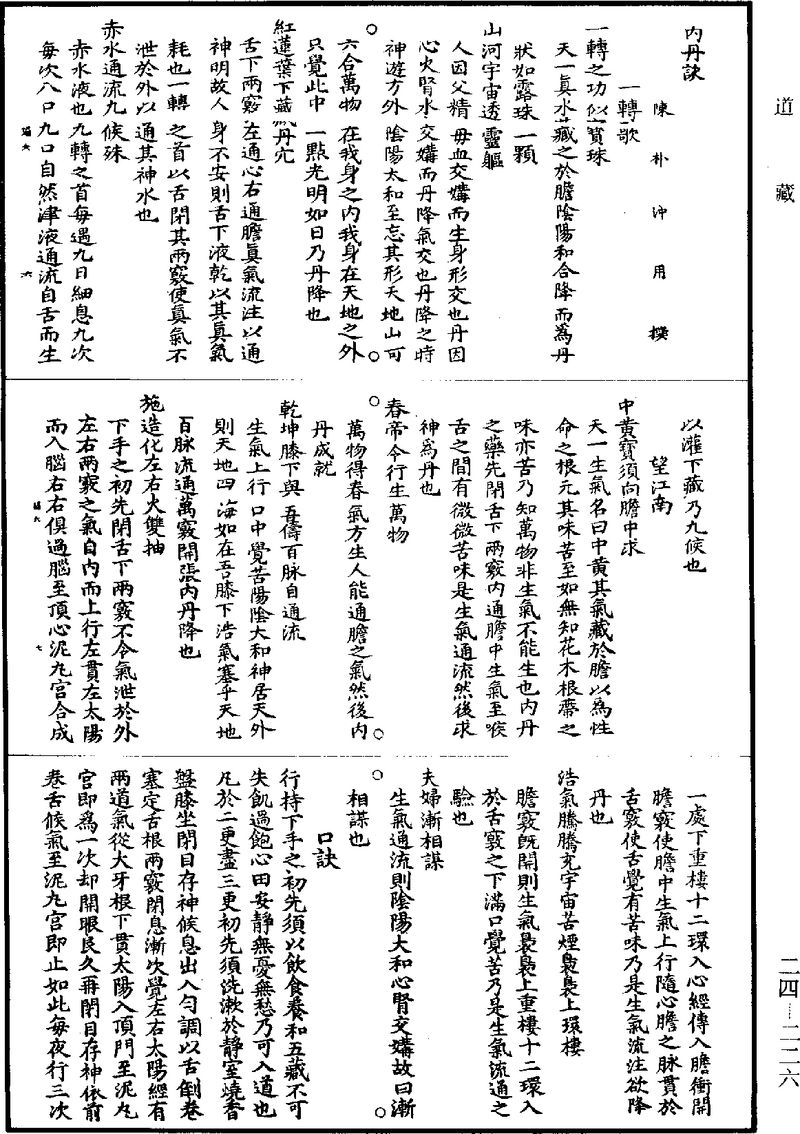 道藏
內丹訣
陳朴冲用撰
一轉歌
一轉之功似寶珠
天一真水藏之於膽陰陽和合降而為丹
狀如露珠一顆
山河宇宙透靈軀
人因父精母血交媾而生身形交也丹因
心火腎水交媾而丹降氣交也丹降之時
神遊方外陰陽太和至忘其形天地山可
六合萬物在我身之內我身在天地之外
只覺此中一點光明如日乃丹降也
紅蓮葉下藏丹穴
舌下兩竅左通心右通膽真氣流注以通
神明故人身不安則舌下液乾以其真氣
耗也一轉之首以舌閉其兩竅使真氣不
泄於外以通其神水也
赤水通流九候殊
赤水液也九轉之首每遇九日細息九次
每次八口九口自然津液通流自舌而生
以灌下藏乃九候也
望江南
中黃寶須向膽中求
天一生氣名曰中黃其氣藏於膽以為性
命之根元其味苦至如無知花木根蔕之
味亦苦乃知萬物非生氣不能生也內丹
之藥先閉舌下兩竅內通膽中生氣至喉
舌之間有微微苦味是生氣通流然後求
神為丹也
春帝令行生萬物
萬物得春氣方生人能通膽之氣然後內
丹成就
乾坤膝下與吾儔百脉自通流
生氣上行口中覺苦陽陰大和神居天外
則天地四海如在吾膝下浩氣塞乎天地
百脉流通萬竅開張內丹降也
施造化左右火雙抽
下手之初先閉舌下兩竅不令氣泄於外
左右兩竅之氣自內而上行左貫左太陽
而入腦右右俱過腦至頂心泥丸宮合成
一處下重樓十二環入心經傳入膽衝開
膽竅使膽中生氣上行隨心膽之脉貫於
舌竅使舌覺有苦味乃是生氣流注欲降
丹也
浩氣騰騰充宇宙苦煙裊裊上環樓
膽竅既開則生氣裊裊上重樓十二環入
於舌竅之下滿口覺苦乃是生氣流通之
驗也
夫婦漸相謀
生氣通流則陰陽大和心腎交媾故曰漸
相謀也
口訣
行持下手之初先須以飲食養和五藏不可
失飢過飽心田安靜無憂無愁乃可入道也
凡於二更盡三更初先須洗漱於靜室燒香
盤膝坐閉目存神候息出入勻調以舌倒卷
塞定舌根兩竅閉息漸次覺左右太陽經有
兩道氣從大牙根下貫太陽入頂門至泥丸
宮即為一次却開眼良久再閉目存神依前
卷舌候氣至泥丸宮即止如此每夜行三次
二四—二二六